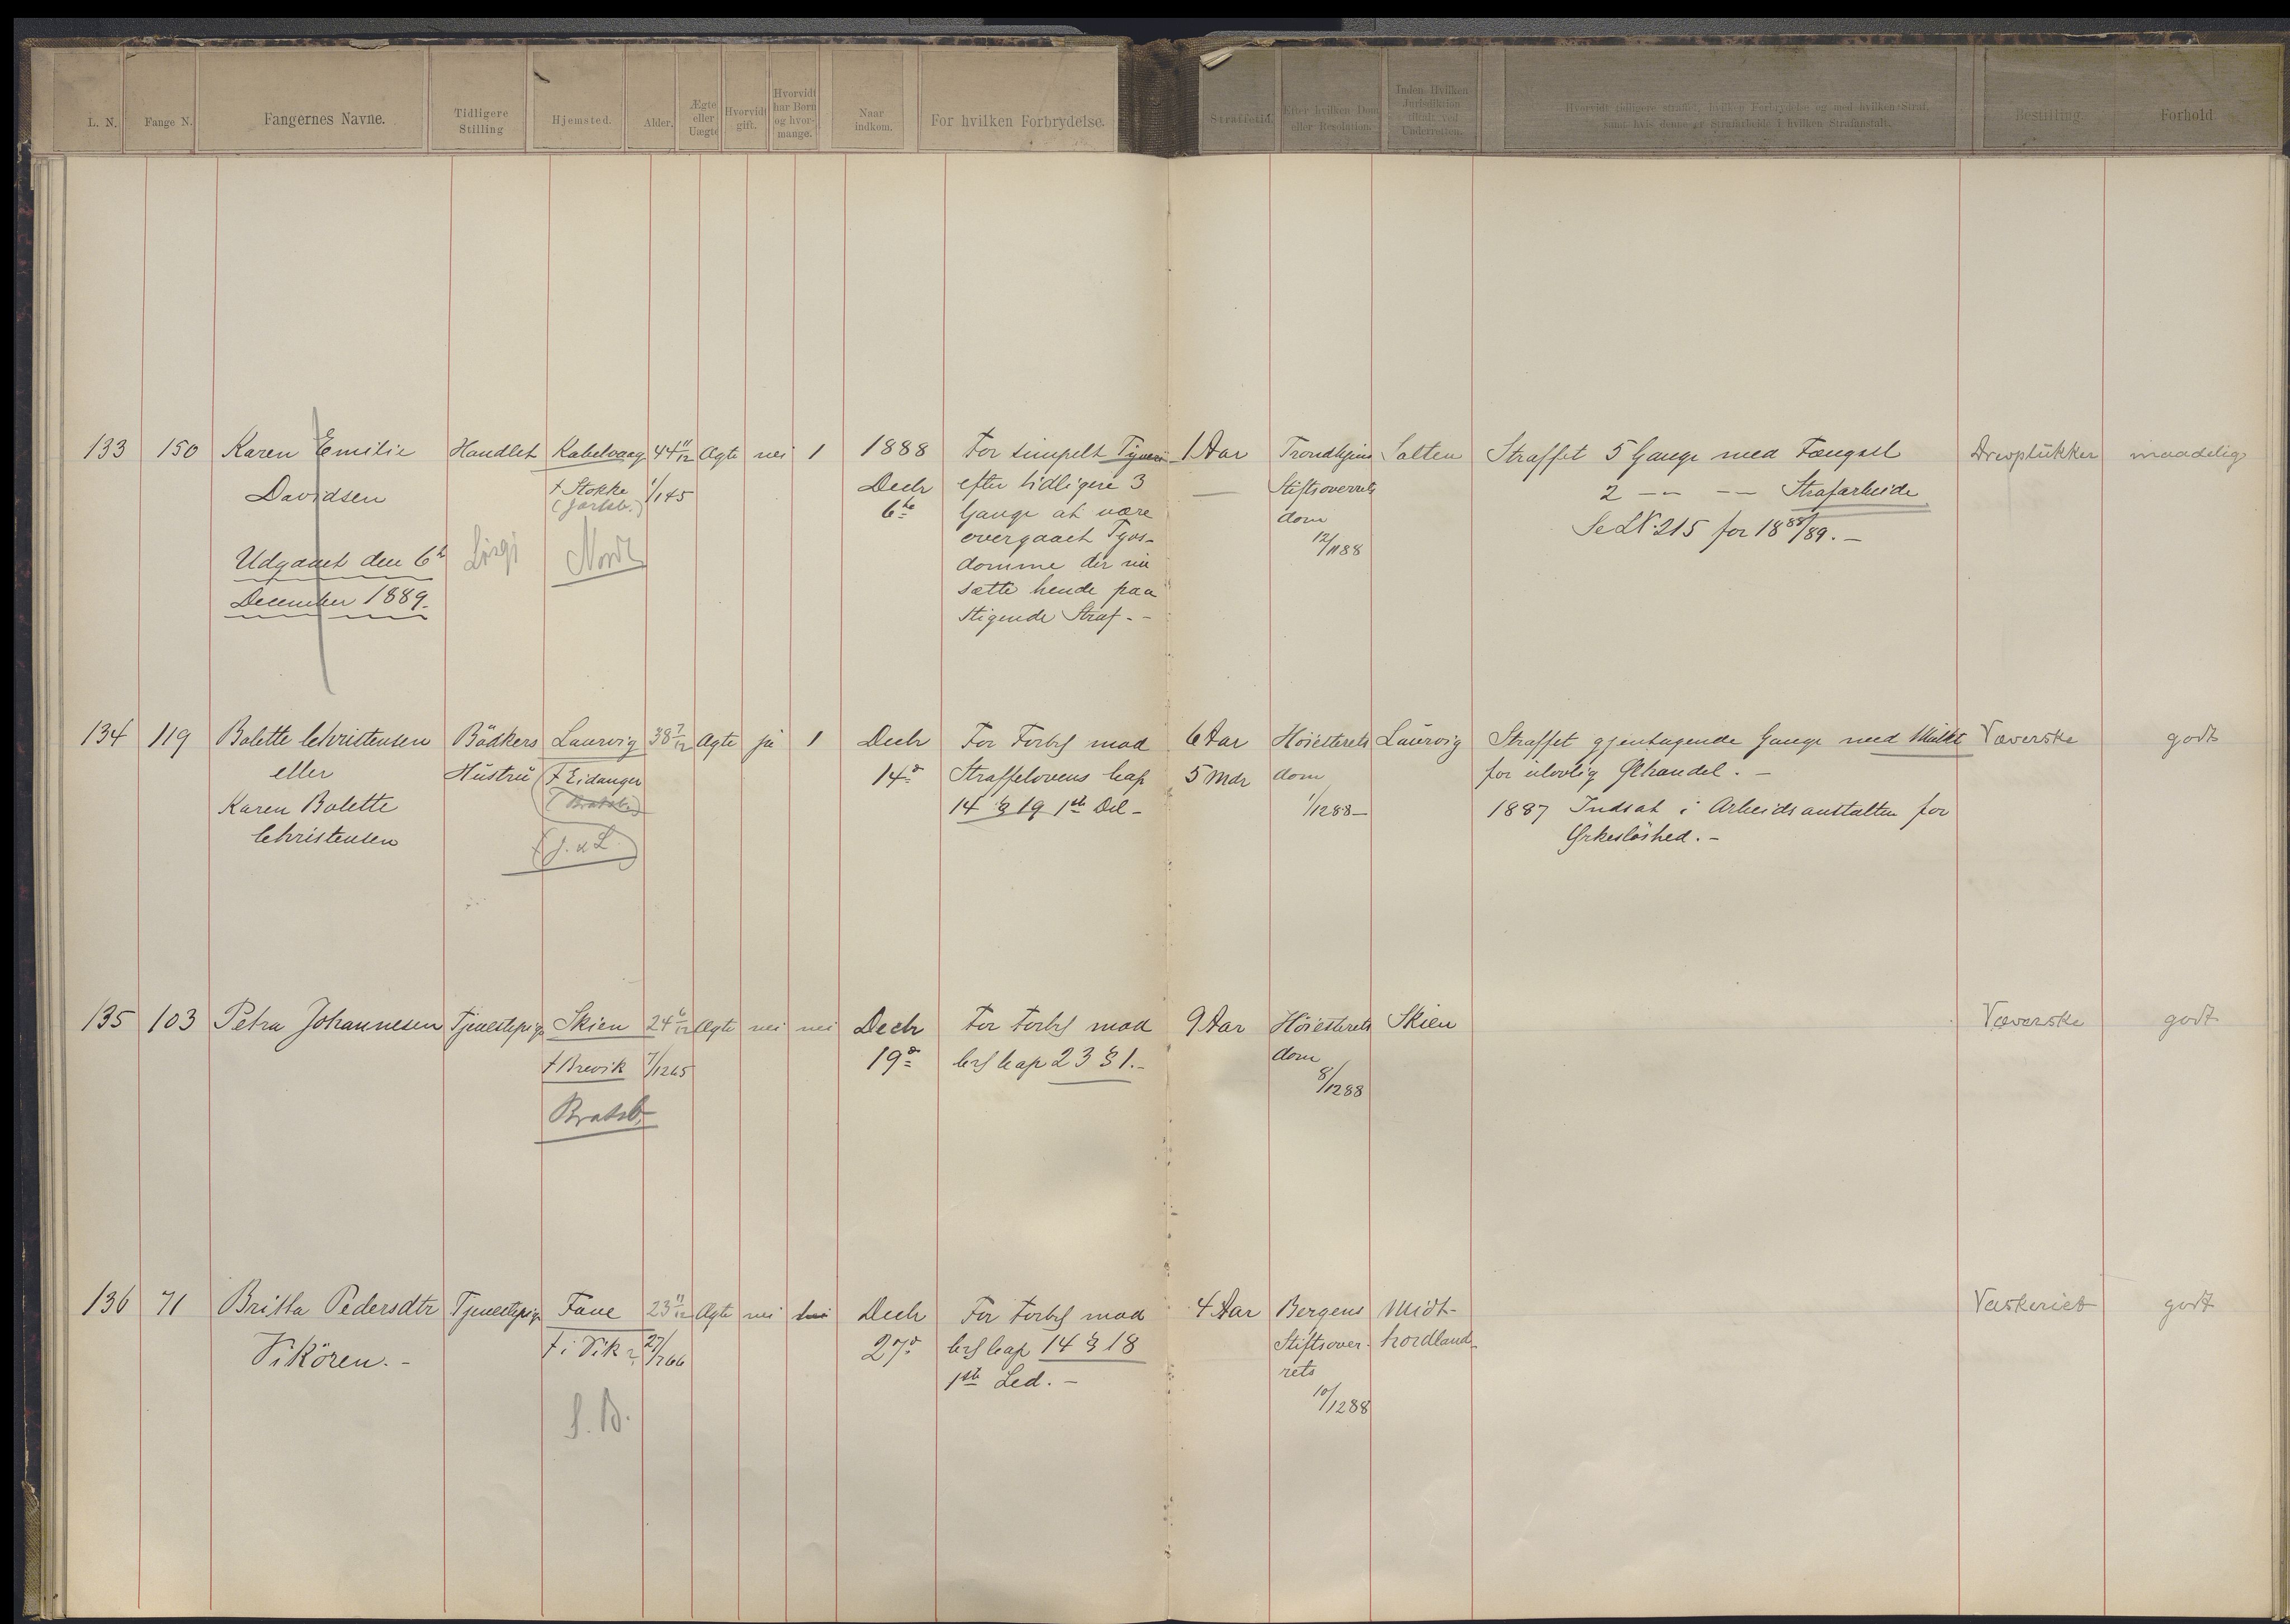 L. N.
Fange N.
Fangernes Navne.
Tidligere
Stilling
Hjemsted.
Alder.
Ægte
eller
Uægte
Hvorvidt
gift.
Hvorvidt
har Børn
og hvor-
mange.
Naar
indkom.
For hvilken Forbrydelse.
Straffetid.
Efter hvilken Dom
eller Resolution.
Inden Hvilken
Jurisdiktion
tiltalt ved
Underretten.
Hvorvidt tidligere straffet, hvilken Forbrydelse og med hvilken Straf,
samt hvis denne er Strafarbeide i hvilken Strafanstalt.
Bestilling
Forhold
133 150 Karen Emilie Handlet Kabelvaag 44 11/12 Ægte nei 1 1888 For simpelt Tyveri 1 Aar Trondhjems Salten Straffet 5 Gange med Fængsel Drevplukker maadelig
Davidsen f Stokke 1/1 45 Decbr efter tidligere 3 — Stiftsoverrets 2 — — Strafarbeide
(Jarlsb.) 6te Gange at være dom Se LN. 215 for 1888/89. —
Udgaaet den 6te Nordl overgaaet Tyvs- 12/11 88
December 1889. domme der nu
sætte hende paa
stigende Straf. —
134 119 Bolette Christensen Bödkers Laurvig 38 7/12 Ægte ja 1 Decbr For Forbr mod 6 Aar Höiesterets Laurvig Straffet gjentagende Gange med Mulkt Væverske godt
eller Hustru f Eidanger 14de Straffelovens Cap 5 Mdr dom for ulovlig Ølhandel. —
Karen Bolette (Bratsb.) 14 § 19 1ste Del — 1/12 88 — 1887 Indsat i Arbeidsanstalten for
Christensen (J. & L.) Ørkeslöshed. —
135 103 Petra Johannesen Tjenestepige Skien 24 6/12 Ægte nei nei Decbr For Forbr mod 9 Aar Höiesterets Skien Væverske godt
f Brevik 7/12 65 19de Crl Cap 23 § 1. — dom
Bratsb. 8/12 88
136 71 Britha Pedersdtr Tjenestepige Fane 23 11/12 Ægte nei Decbr For Forbr mod 4 Aar Bergens Midt- Vaskeriet godt
Vikören. — f i Vik 27/12 66 27de Crl Cap 14 § 18 Stiftsover- hordland
S. B. 1ste Led. — rets
10/12 88